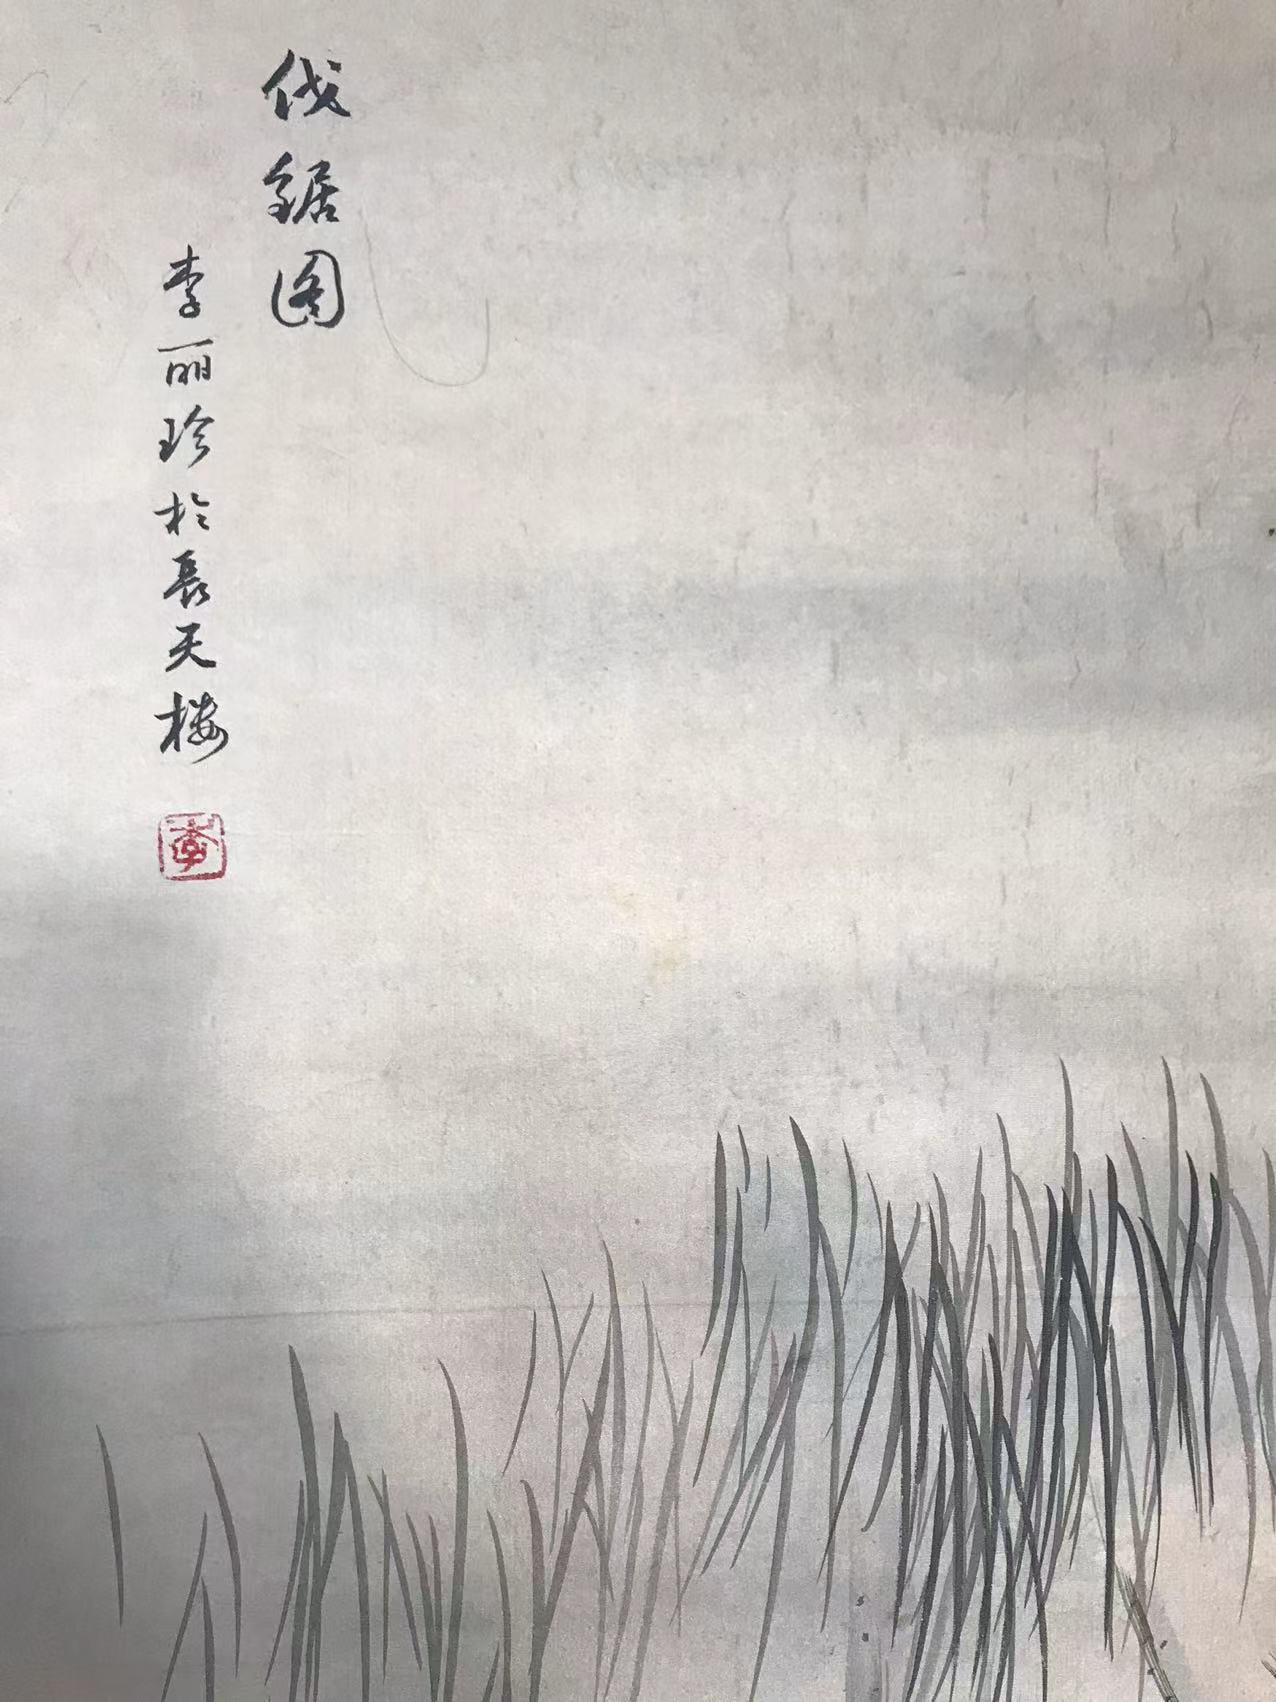 伐鋸图
李丽珍於長天楼
李